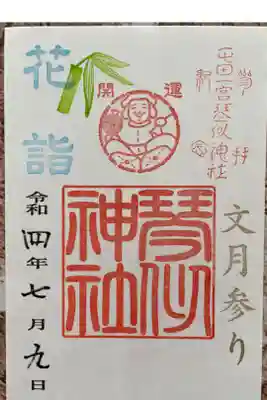 琴似神社
文月参り
開運
琴似
神社
花詣
令和四年七月九日